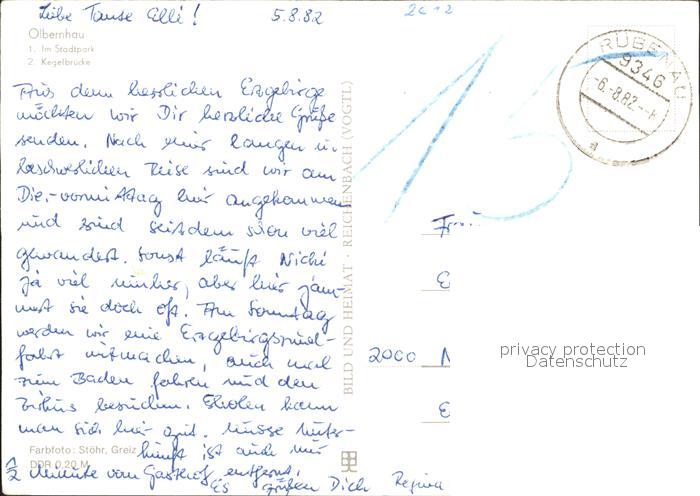 Liebe Tante Elli! 5.8.82
Olbernhau
1. Im Stadtpark
2. Kegelbrücke
Aus dem herrlichen Erzgebirge
möchten wir Dir herzliche Grüße
senden. Nach einer langen u.
beschwerlichen Reise sind wir am
Die.-vormittag hier angekommen
und sind seitdem schon viel
gewandert. Sonst läuft Nicki
ja viel umher, aber hier jam-
mert sie doch oft. Am Sonntag
werden wir eine Erzgebirgsrund-
fahrt mitmachen, auch mal
zum Baden fahren und den
Zirkus besuchen. Erholen kann
man sich hier gut. Unsere Unter-
kunft ist auch nur
1/2 Minute vom Gasthof entfernt.
Es grüßen Dich Regina
Farbfoto: Stöhr, Greiz
DDR 0,20 M
BILD UND HEIMAT · REICHENBACH (VOGTL)
15
RÜBENAU
9346
-6.-8.82.--
a
2000 N
privacy protection
Datenschutz